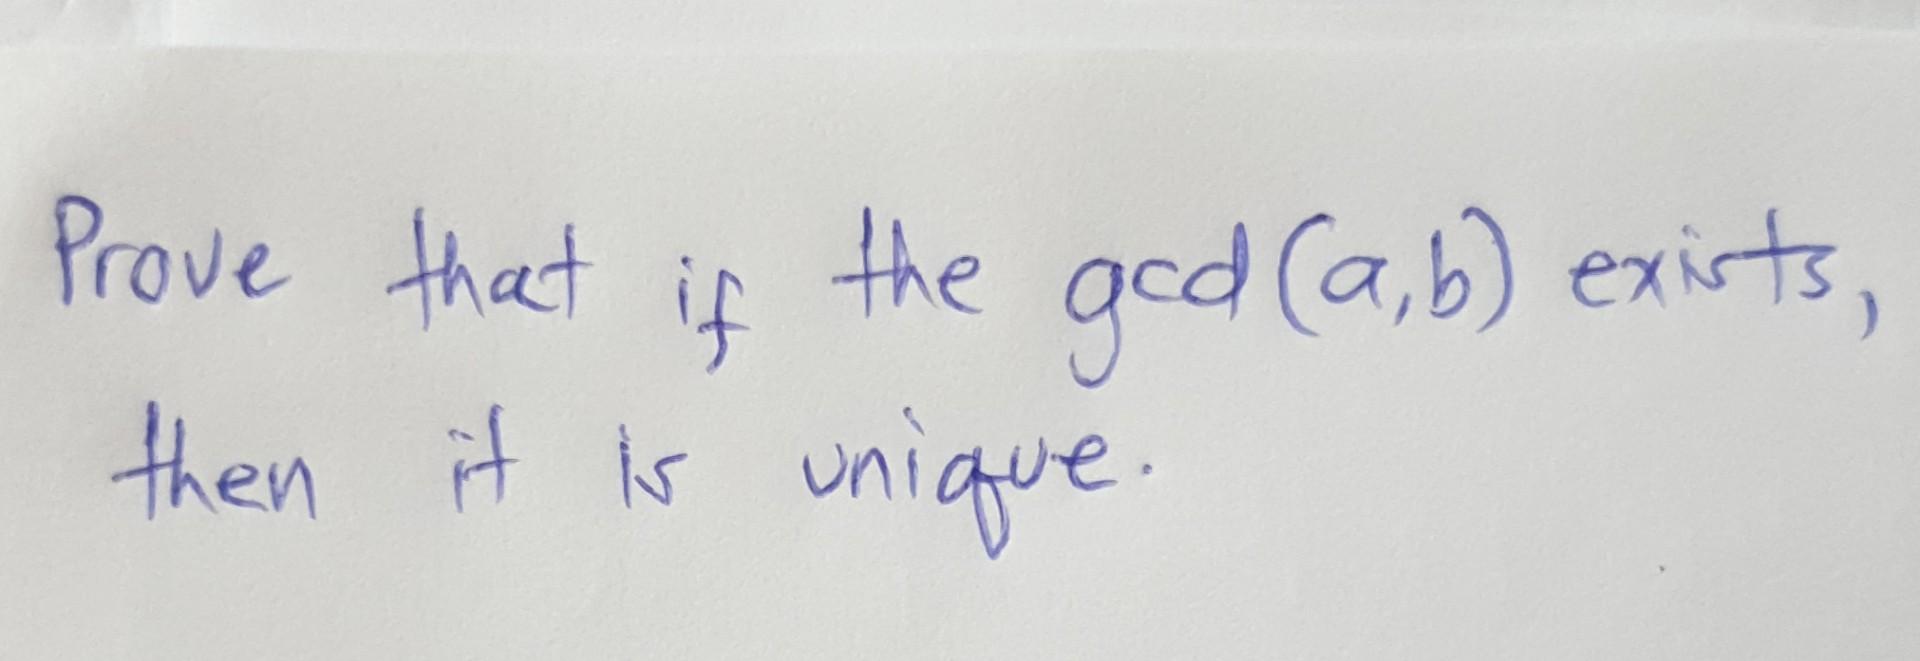 Prove that if the gcd(a,b) exists,
then it is unique.